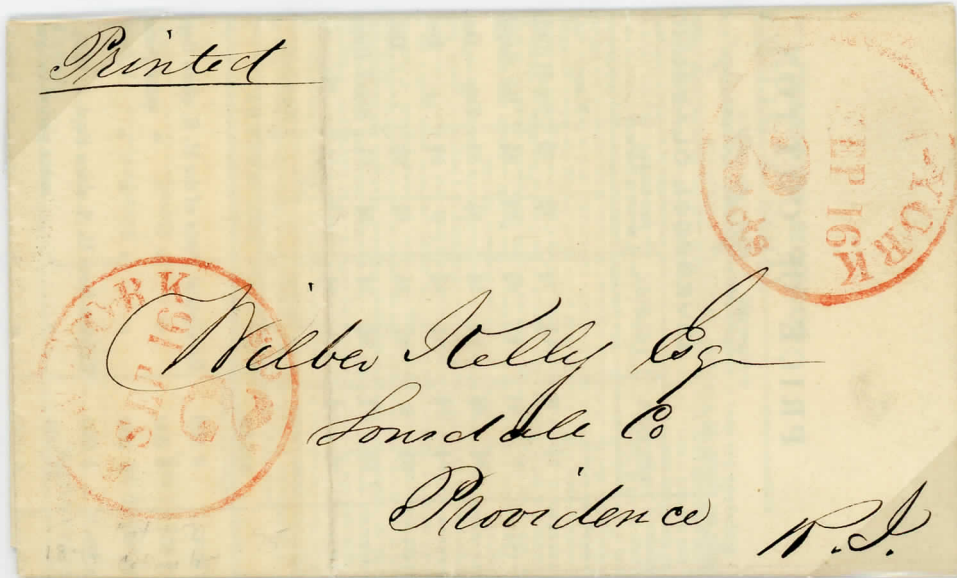 Printed
YORK
SEP 16
2 cts
YORK
SEP 16
2
Wilber Kelly Esq
Lonsdale Co
Providence
R.I.